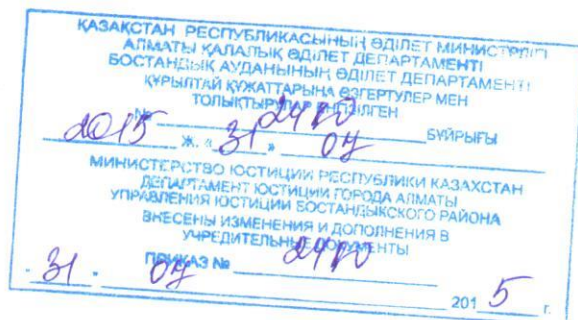 ҚАЗАҚСТАН РЕСПУБЛИКАСЫНЫҢ ӘДІЛЕТ МИНИСТРЛІГІ
АЛМАТЫ ҚАЛАЛЫҚ ӘДІЛЕТ ДЕПАРТАМЕНТІ
БОСТАНДЫҚ АУДАНЫНЫҢ ӘДІЛЕТ ДЕПАРТАМЕНТІ
ҚҰРЫЛТАЙ ҚҰЖАТТАРЫНА ӨЗГЕРТУЛЕР МЕН
ТОЛЫҚТЫРУЛАР ЕНГІЗІЛГЕН
№ БҰЙРЫҒЫ
2015 ж. «31» 07
МИНИСТЕРСТВО ЮСТИЦИИ РЕСПУБЛИКИ КАЗАХСТАН
ДЕПАРТАМЕНТ ЮСТИЦИИ ГОРОДА АЛМАТЫ
УПРАВЛЕНИЯ ЮСТИЦИИ БОСТАНДЫКСКОГО РАЙОНА
ВНЕСЕНЫ ИЗМЕНЕНИЯ И ДОПОЛНЕНИЯ В
УЧРЕДИТЕЛЬНЫЕ ДОКУМЕНТЫ
ПРИКАЗ №
31 07 2015 г.